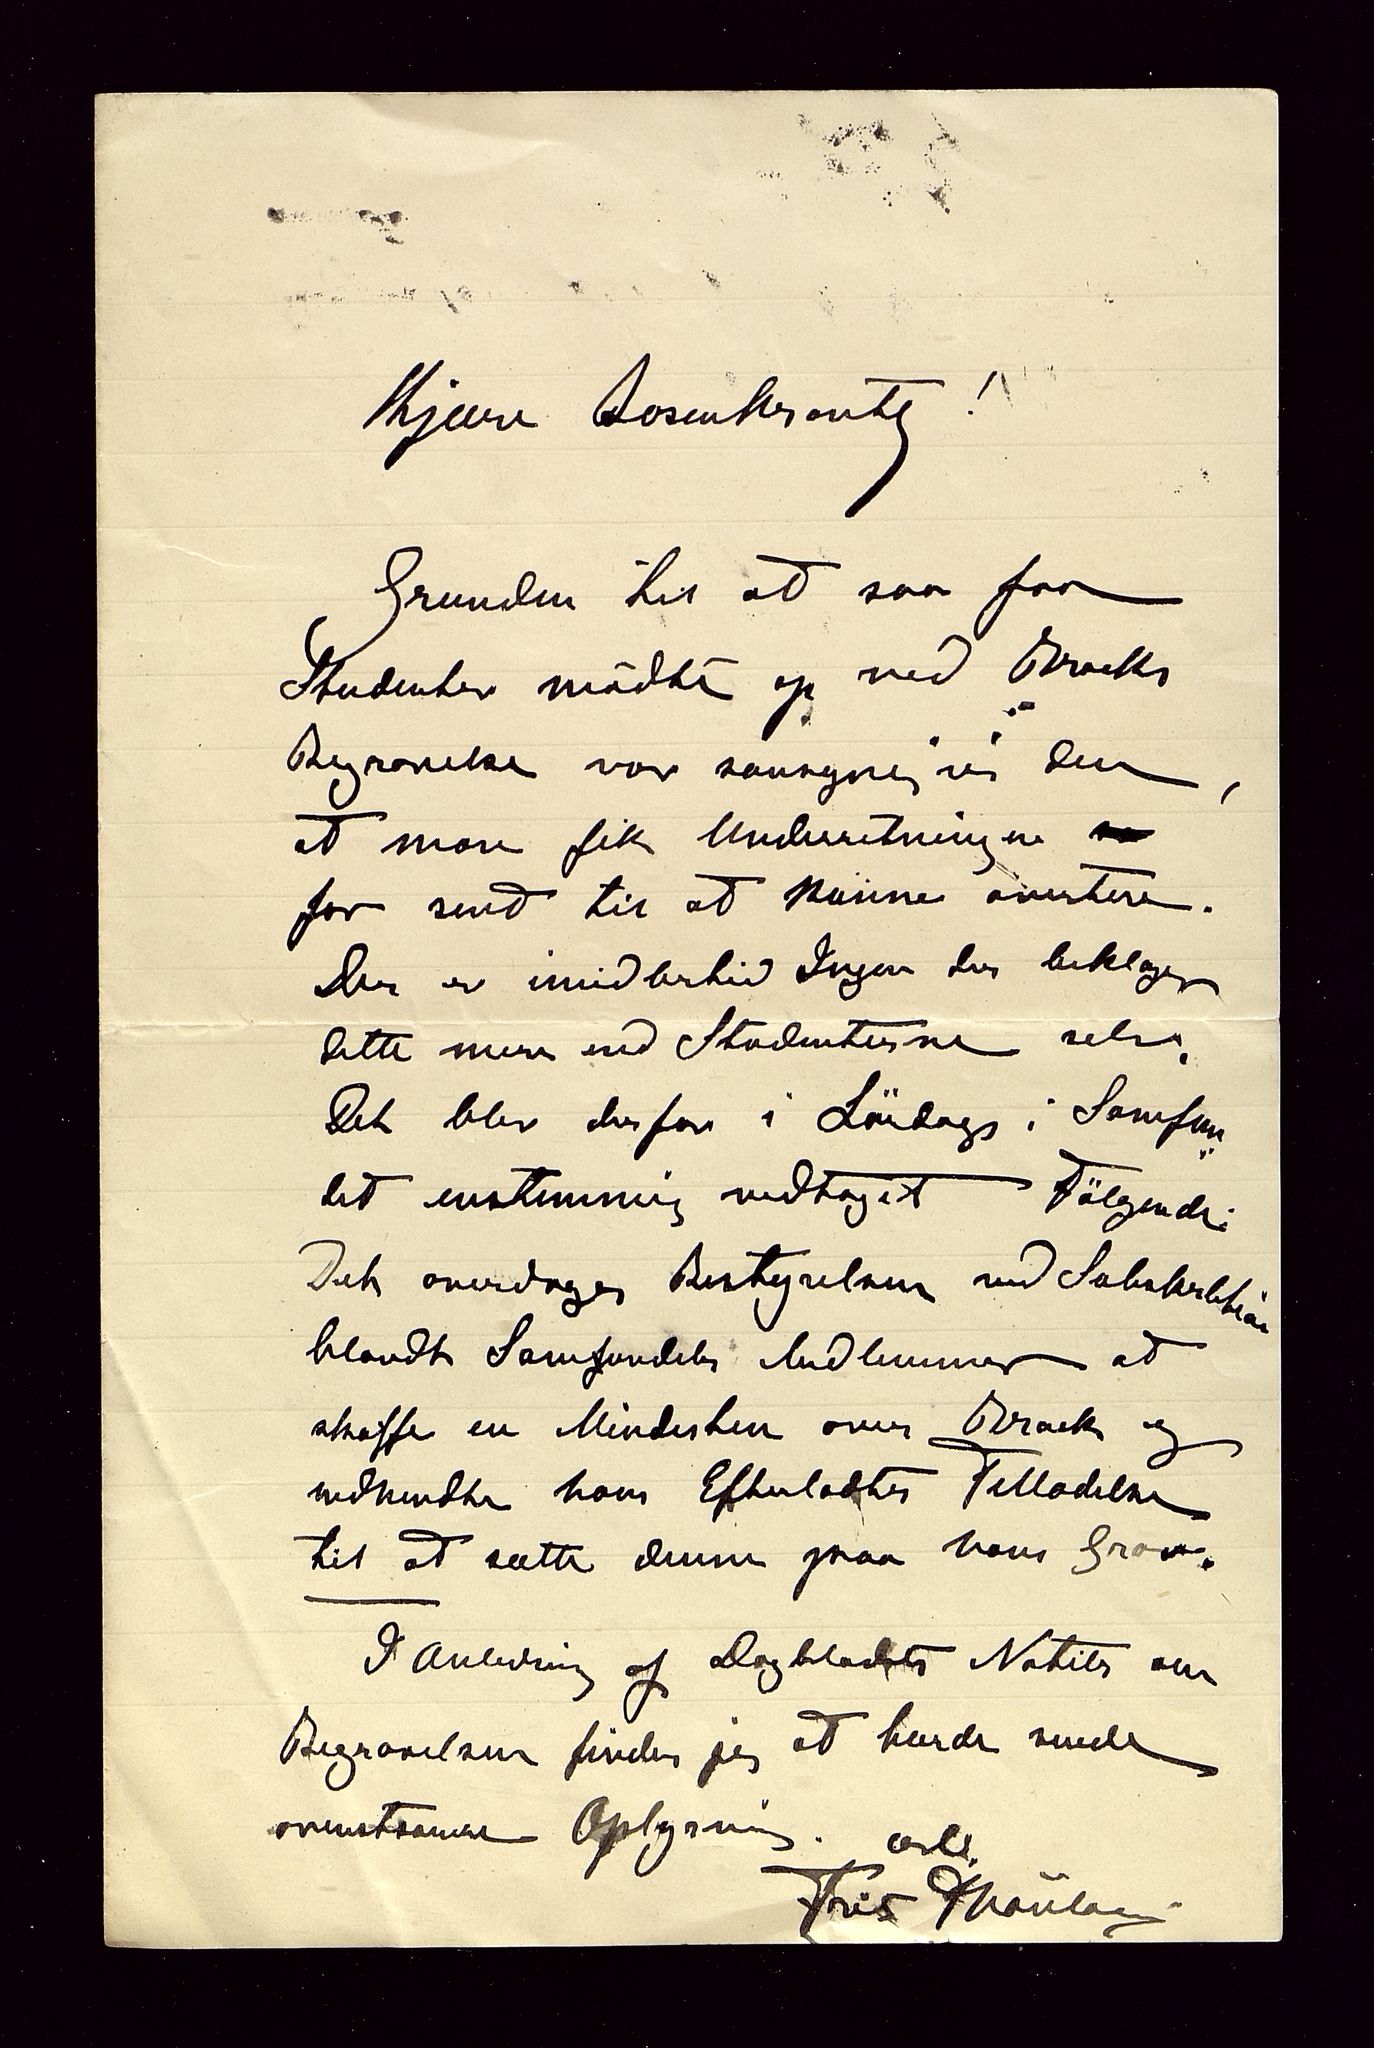 Kjære Rosenkrantz!
Grunden til at saa faa
Studenter mödte op ved Bracks
Begravelse var den,
at man fik Underretningen
for sent til at kunne
Der er imidlertid Ingen der beklager
dette mere end Studenterne selv.
Det blev derfor i Lördags i Samfun
det enstemmig vedtaget Fölgende:
Det overdrages Bestyrelsen ved Subskribtion
blandt Samfundets Medlemmer at
skaffe en Mindesten over Brack og
hans Efterladtes Tilladelse
til at sætte denne paa hans Grav.
I Anledning af Dagbladets Notits om
Begravelsen finder jeg at burde sende
ovenstaaende Oplysning. ærb.
Fris